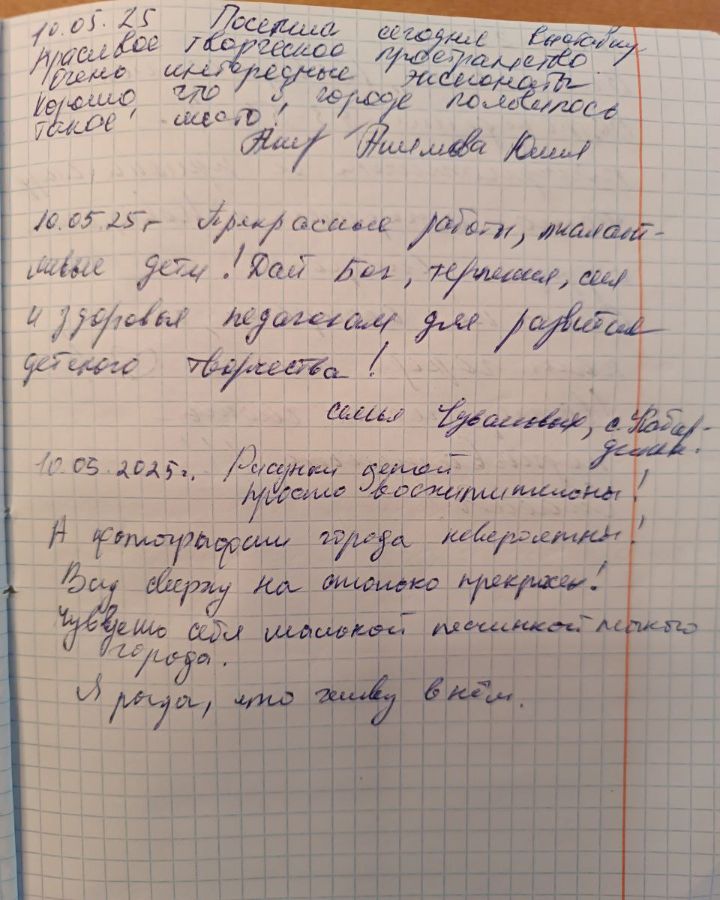 10.05.25 Посетила сегодня выставку
Красивое творческое пространство
Очень интересные экспонаты
Хорошо что в городе появилось
такое место!
Юлия
10.05.25г Прекрасные работы, талант-
ливые дети! Дай Бог, терпения, сил
и здоровья педагогам для развития
детского творчества!
семья Чувановых, с. Кабар-
динк.
10.05.2025г. Рисунки детей
просто восхитительны!
А фотографии города невероятны!
Вид сверху на столько прекрасен!
Чувуешь себя малой песчинкой такого
города.
Я рада, что живу в нём.